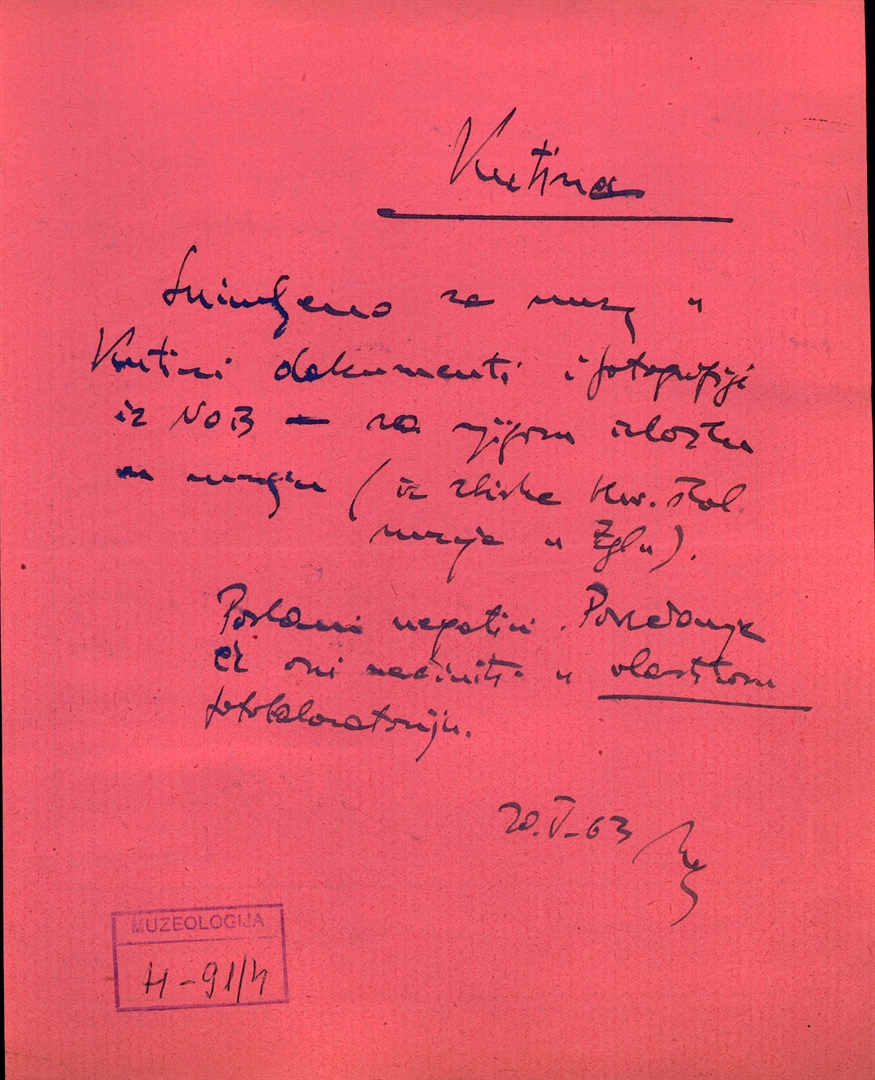 Kutina
Snimljeno za muzej u
Kutini dokumenti i fotografije
iz NOB — za njihovu izložbu
u muzeju (iz zbirke Hrv. škol.
muzeja u Zgbu).
Poslani negativi. Povećanja
će oni načiniti u vlastitom
fotolaboratoriju.
20.V-63
MUZEOLOGIJA
H-91/4